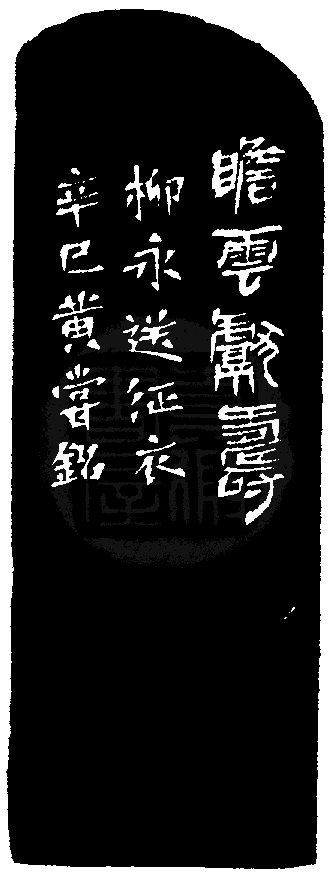 瞻雲獻壽
柳永送征衣
辛巳黃嘗銘